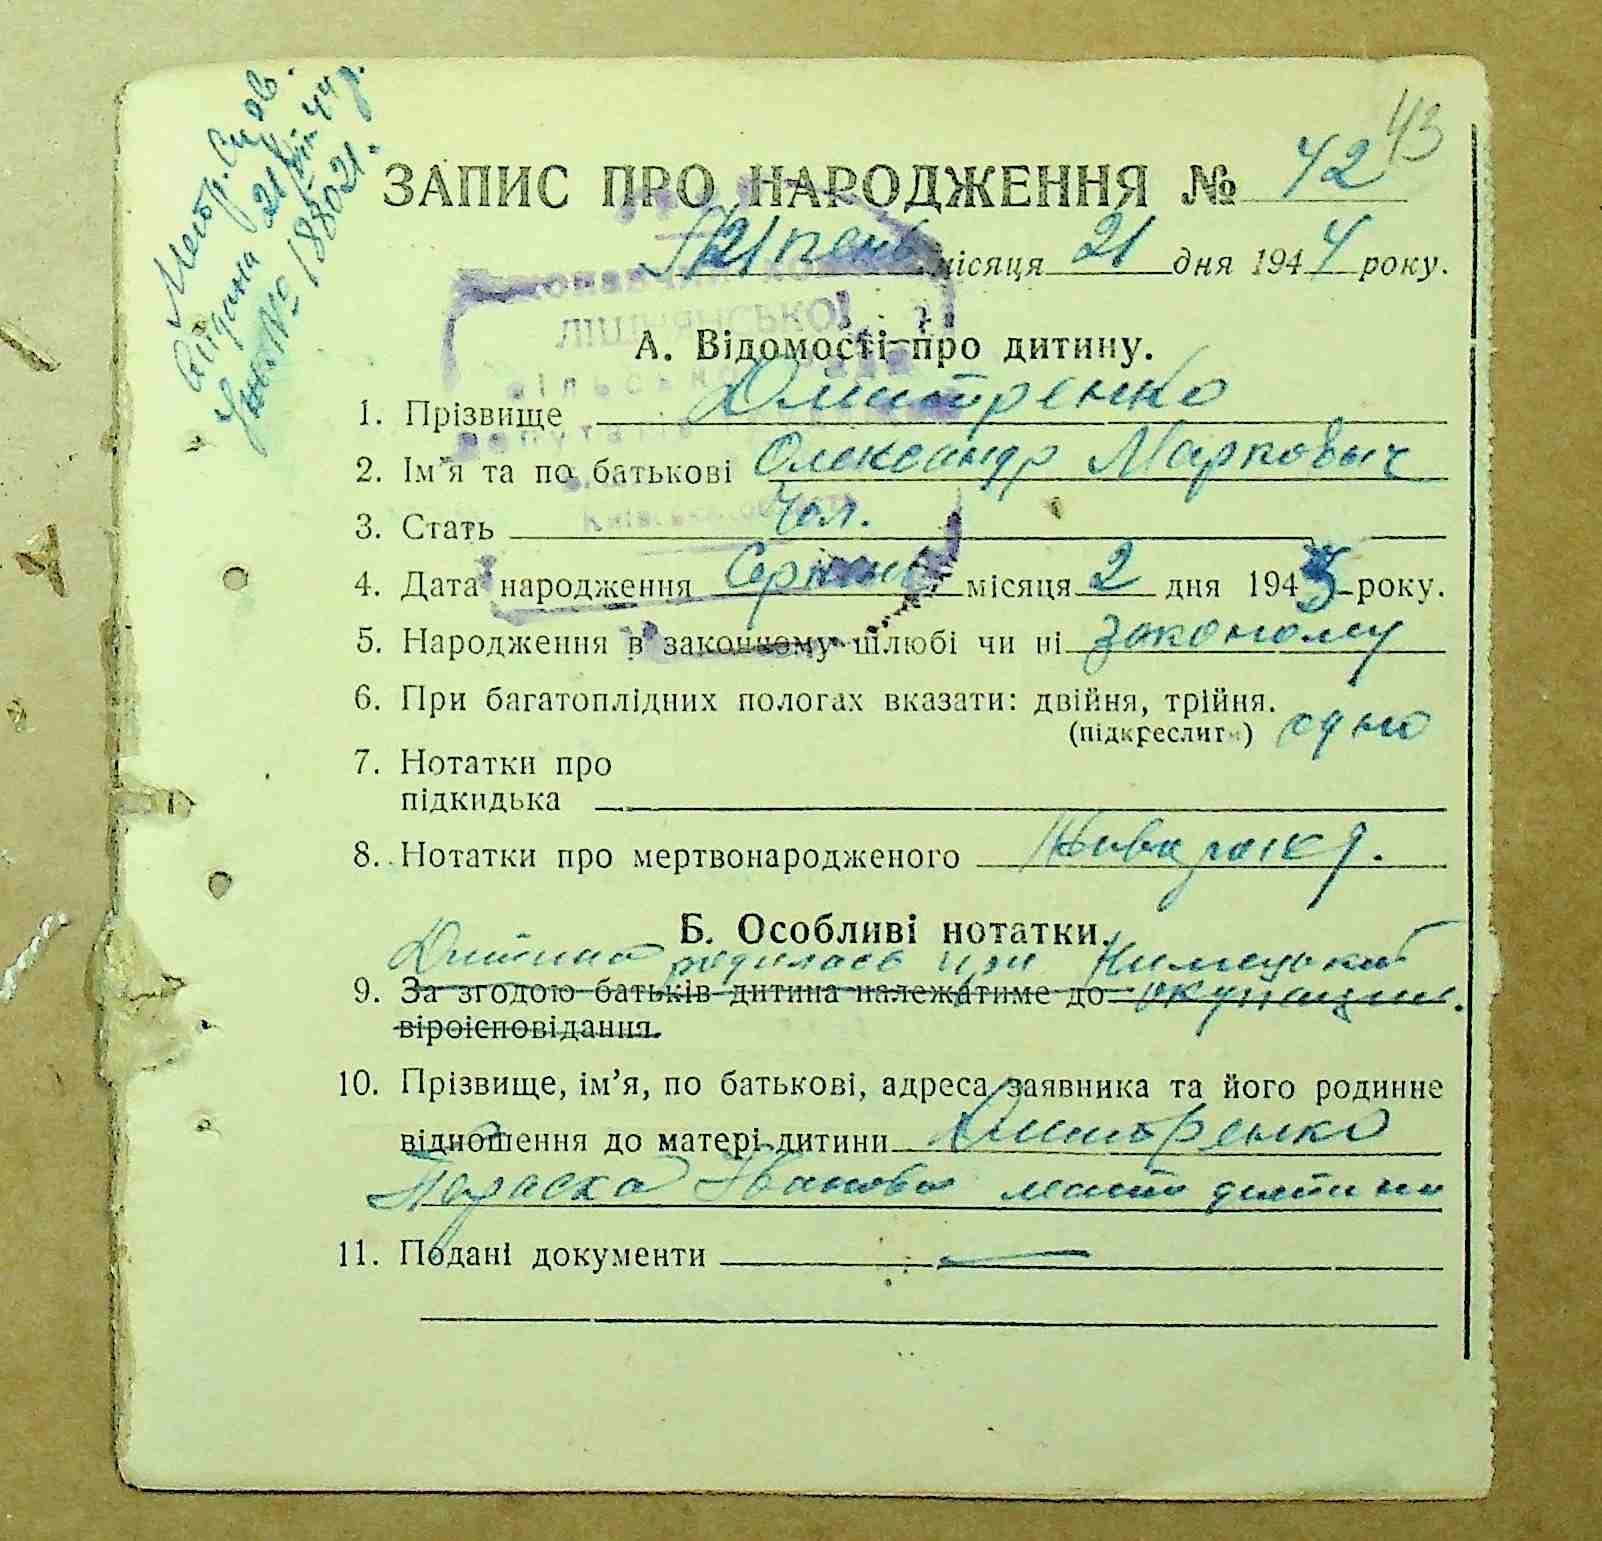 43
Метр. Свідов.
видана 21/VII 44 р.
№ 188021.
ЗАПИС ПРО НАРОДЖЕННЯ № 42
Липень місяця 21 дня 1944 року.
Виконавчий
ЛІЩИНСЬКОЇ
сільської ради
депутатів
Київської області
А. Відомості про дитину.
1. Прізвище Дмитренко
2. Ім'я та по батькові Олександр Марковыч
3. Стать Чол.
4. Дата народження Серпень місяця 2 дня 1943 року.
5. Народження в законному шлюбі чи ні законому
6. При багатоплідних пологах вказати: двійня, трійня.
(підкреслити) одно
7. Нотатки про
підкидька
8. Нотатки про мертвонародженого
Б. Особливі нотатки.
Дитина родилась при Нимецький
9. За згодою батьків дитина належатиме до окупации.
віроісповідання.
10. Прізвище, ім’я, по батькові, адреса заявника та його родинне
відношення до матері дитини Дмитренко
Параска Іванова мати дитини
11. Подані документи —